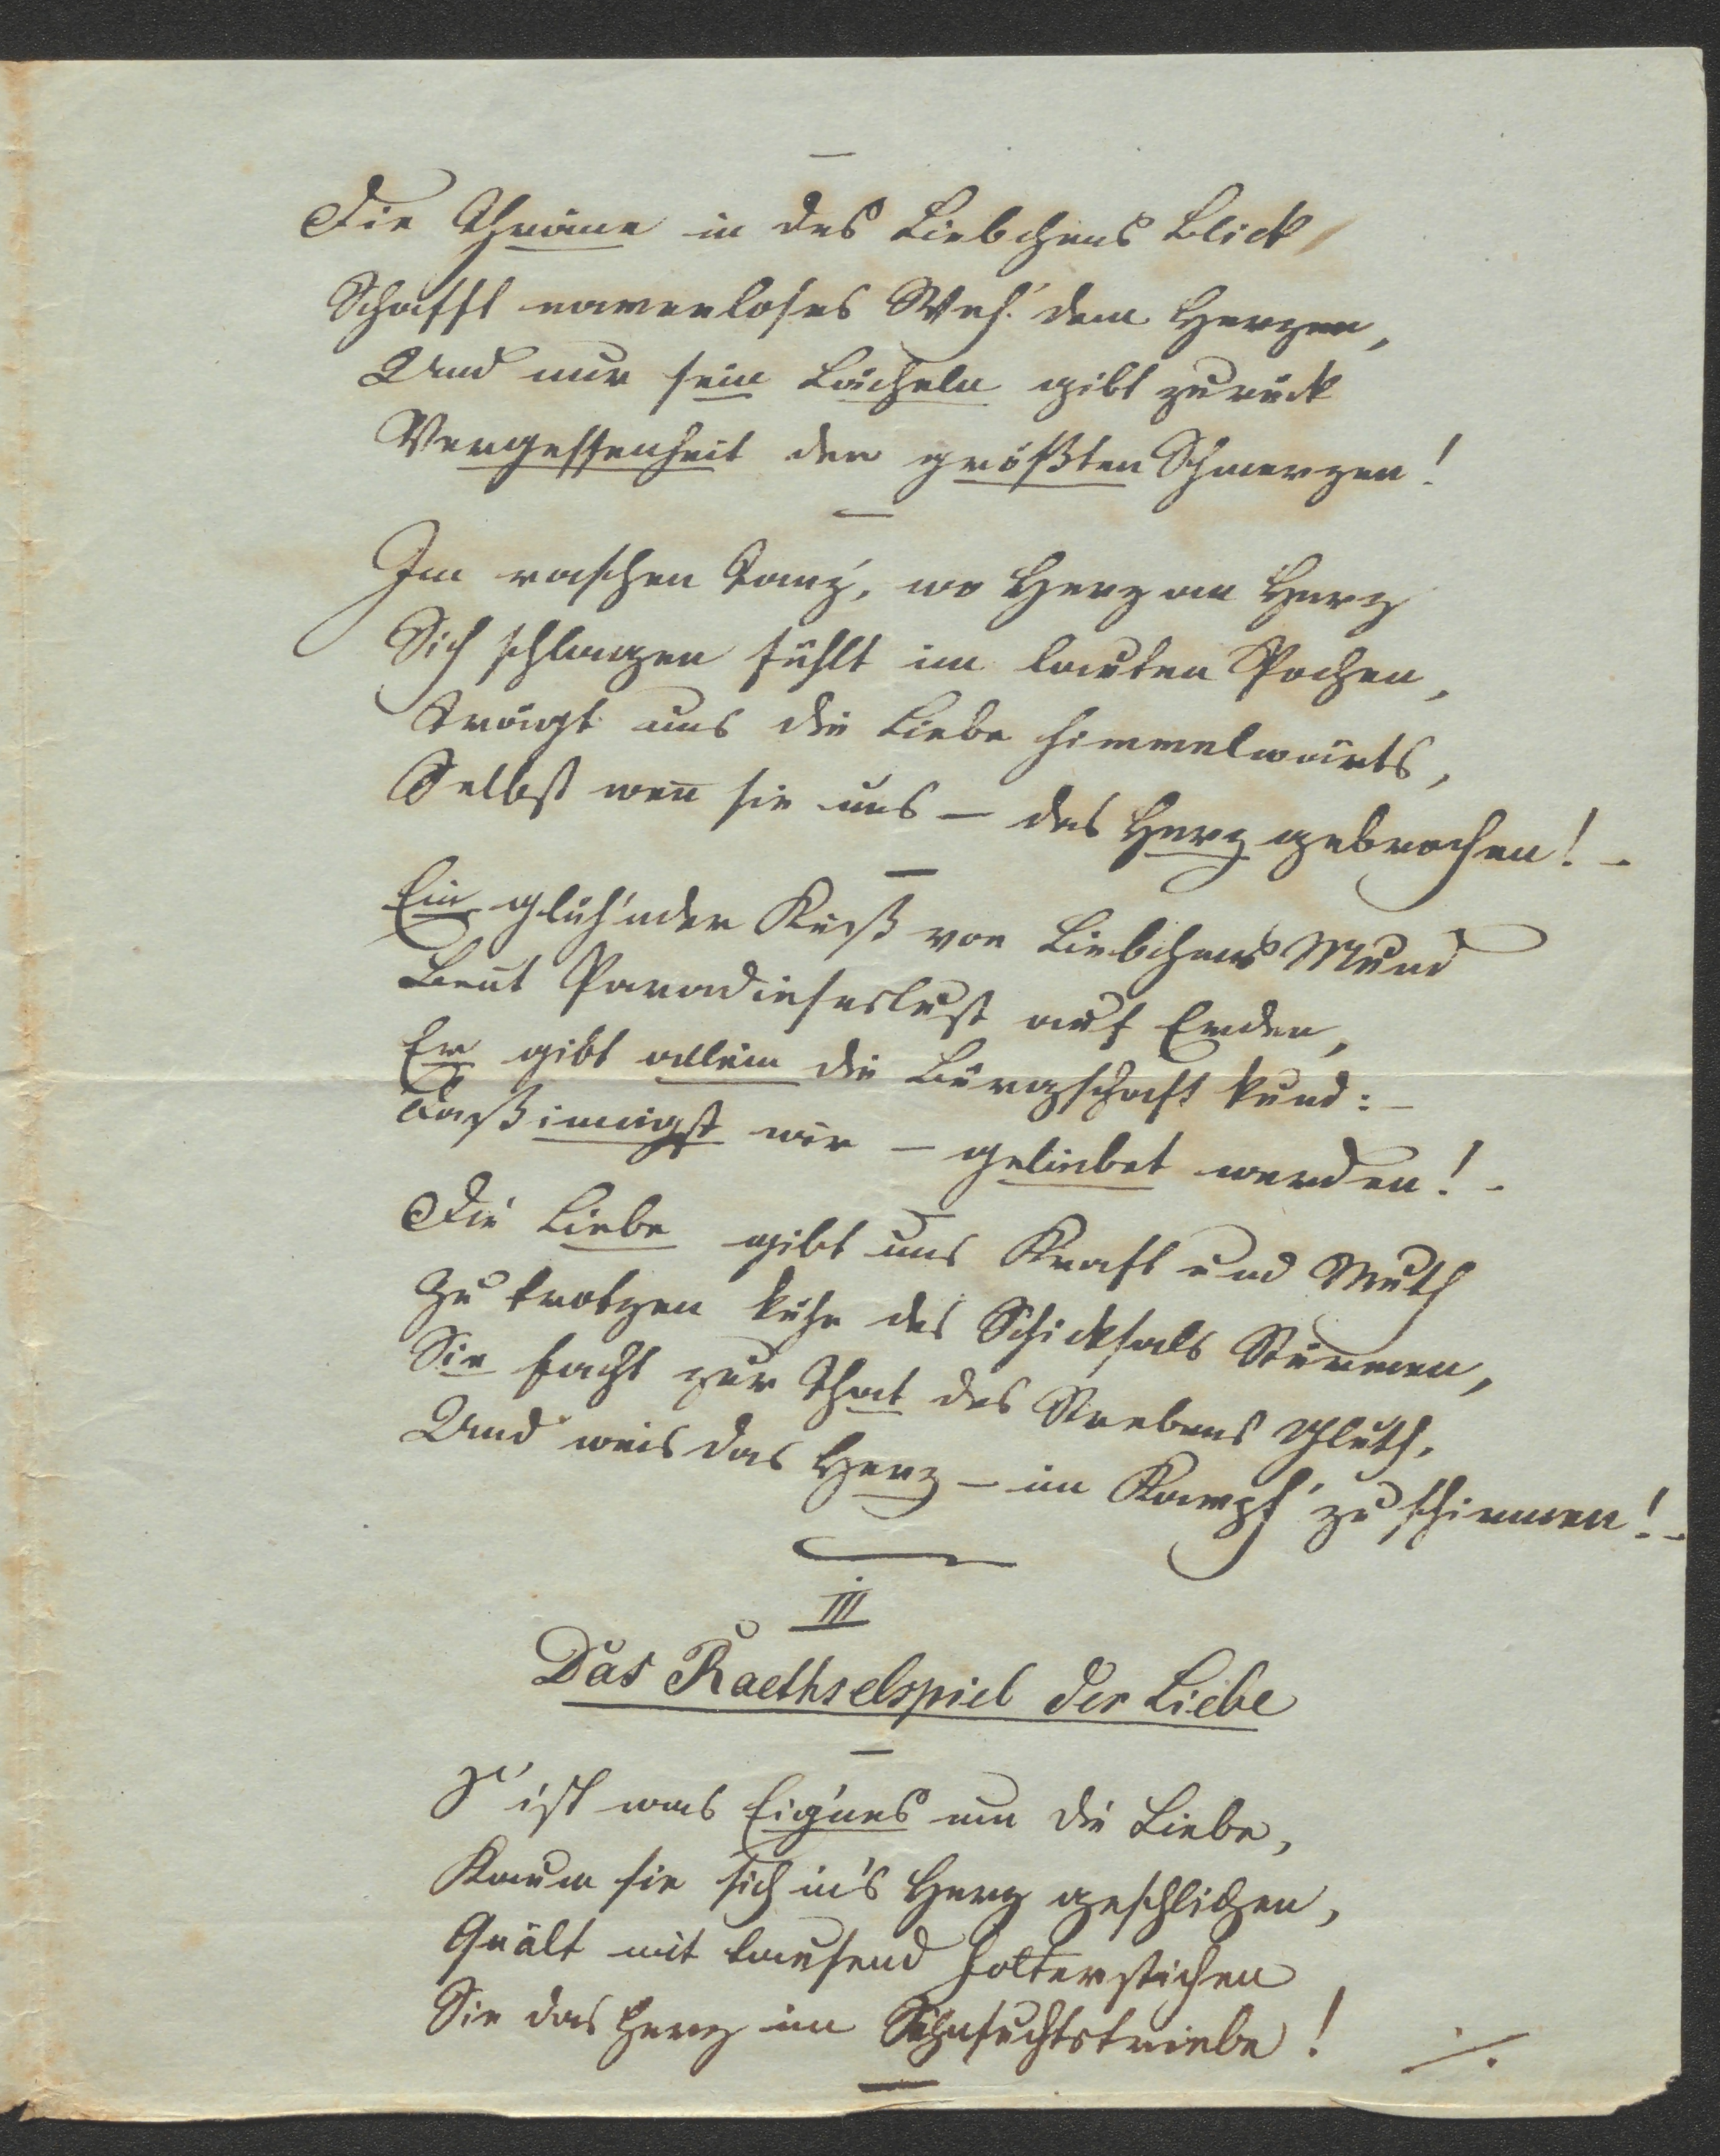 Die Thräne in des Liebchens Blick
Schafft namenloses Weh' dem Herzen,
Und nur sein Lächeln gibt zurück
Vergessenheit der größten Schmerzen!
Im raschen Tanz', wo Herz an Herz
Sich schlagen fühlt im lauten Pochen,
Trägt uns die Liebe himmelwärts,
Selbst wen̄ sie uns – das Herz gebrochen! –
Ein glüh'nder Kuß von Liebchens Mund
Beut Paradieseslust auf Erden,
Er gibt allein die Bürgschaft kund: –
Daß innigst wir – geliebet werden! –
Die Liebe gibt uns Kraft und Muth
Zu trotzen kühn des Schicksals Stürmen,
Sie facht zur That des Strebens Gluth,
Und weis das Herz – im Kampf' zu schirmen! –
III
Das Raethselspiel der Liebe
S' ist was Eig'nes um die Liebe,
Kaum sie sich in's Herz geschlichen,
Quält mit tausend Folterstichen
Sie das Herz im Sehnsuchtstriebe!
./.